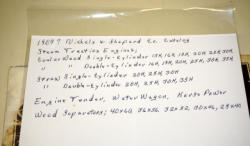 1909? Nichols & Shepard Co. Catalog
Steam Traction Engines;
Single-Cylinder 13H, 16H, 18H, 20H, 25H, 30H
" Double-Cylinder 16H, 18H, 20H, 25H, 30H, 35H
Straw Single-Cylinder 20H, 25H, 30H
" Double-Cylinder 20H, 25H, 30H, 35H
Engine Tender, Water Wagon, Horse Power
Wood Separators; 40x60, 36x56, 32x52, 30x46, 28x40